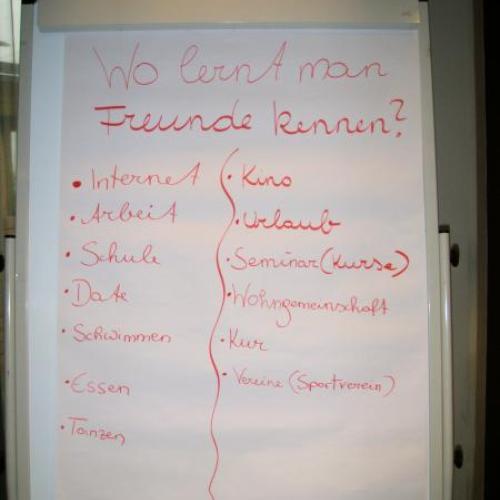 Wo lernt man
Freunde kennen?
• Internet
• Arbeit
• Schule
• Date
• Schwimmen
• Essen
• Tanzen
• Kino
• Urlaub
• Seminar (Kurse)
• Wohngemeinschaft
• Kur
• Vereine (Sportverein)